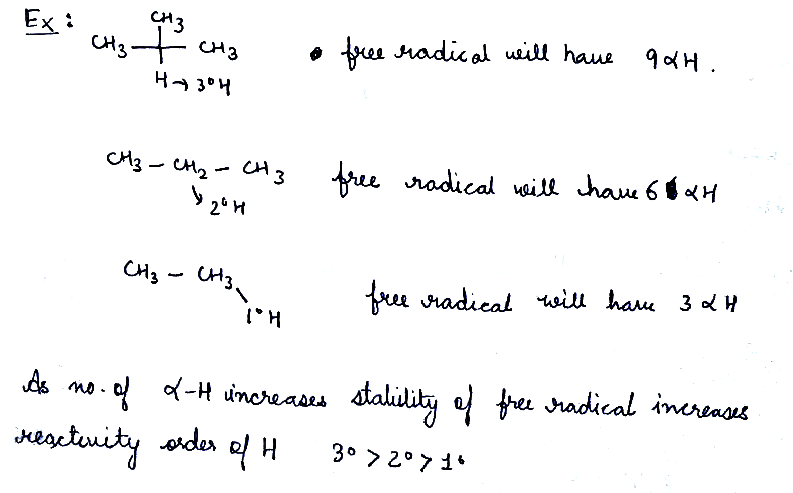 Ex :
CH3
CH3 CH3
H → 3°H
free radical will have 9αH.
CH3 – CH2 – CH3
2°H
free radical will have 6 αH
CH3 – CH3
1°H
free radical will have 3 αH
As no. of α-H increases stability of free radical increases
reactivity order of H 3° > 2° > 1°